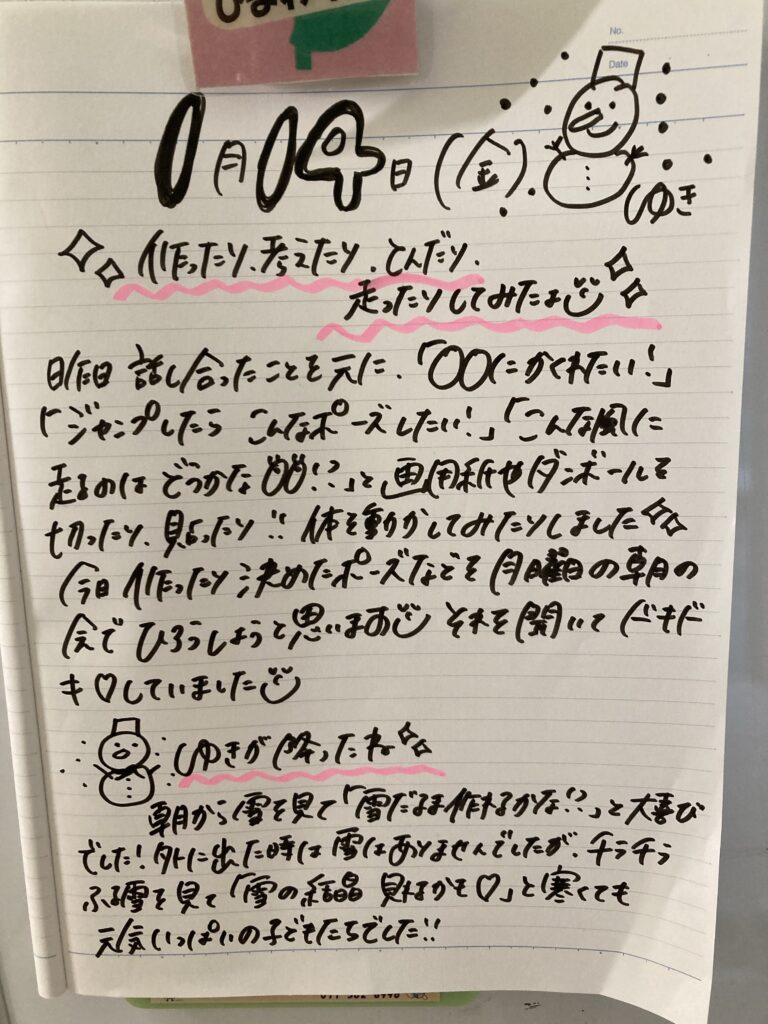 No.
Date
1月14日(金)
ゆき
作ったり、考えたり、とんだり、
走ったりしてみたよ
昨日 話し合ったことを元に、「〇〇にかくれたい!」
「ジャンプしたら こんなポーズしたい!」「こんな風に
走るのは どうかな!?」と 画用紙やダンボールを
切ったり、貼ったり!! 体を動かしてみたりしました
今日 作ったり 決めたポーズなどを 月曜日の朝の
会で ひろうしようと思います それを聞いて ドキド
キ♡していました
ゆきが降ったね
朝から雪を見て「雪だるま作れるかな!?」と大喜び
でした!外に出た時は 雪はありませんでしたが、チラチラ
ふる雪を見て「雪の結晶 見れるかも♡」と寒くても
元気いっぱいの子どもたちでした!!